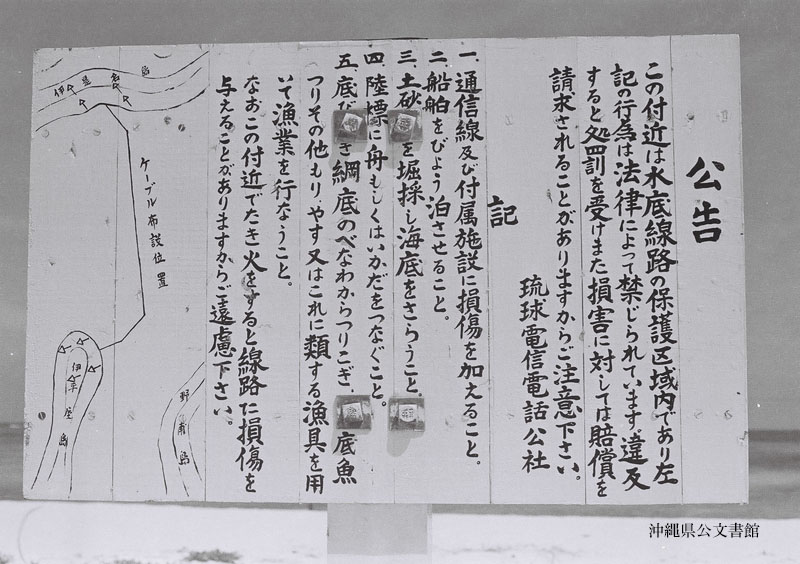 公告
この付近は水底線路の保護区域内であり左
記の行為は法律によって禁じられています。違反
すると処罰を受けまた損害に対しては賠償を
請求されることがありますからご注意下さい。
琉球電信電話公社
記
一.通信線及び付属施設に損傷を加えること。
二.船舶をびょう泊させること。
三.土砂を堀採し海底をさらうこと
四.陸標に舟もしくはいかだをつなぐこと。
五.底びき網底のべなわからつりこぎ、底魚
つりその他もりやす又はこれに類する漁具を用
いて漁業を行なうこと。
なおこの付近でたき火をすると線路に損傷を
与えることがありますからご遠慮下さい。
ケーブル布設位置
伊是名島
伊平屋島
野甫島
沖縄県公文書館